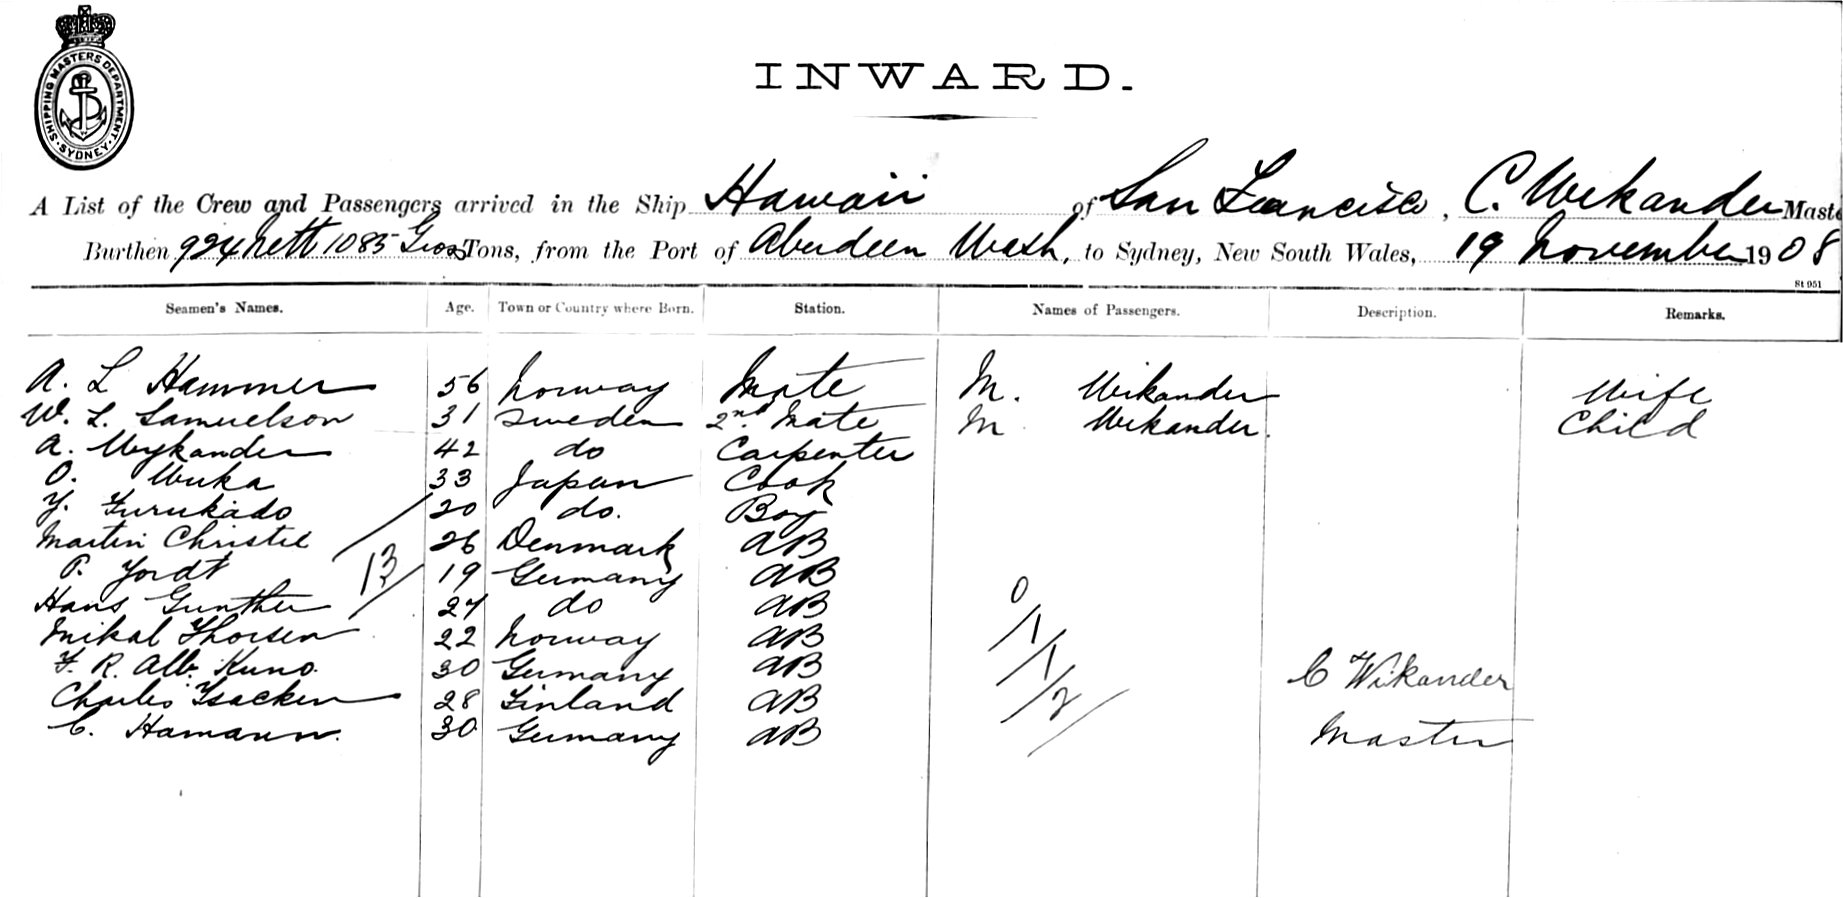 SHIPPING MASTERS DEPARTMENT
SYDNEY
INWARD.
A List of the Crew and Passengers arrived in the Ship Hawaii of San Francisco, C. Wikander Maste
Burthen 924 nett 1085 Gross Tons, from the Port of Aberdeen Wash, to Sydney, New South Wales, 19 November 1908
St 951
Seamen's Names. Age. Town or Country where Born. Station. Names of Passengers. Description. Remarks.
A. L Hammer 56 Norway Mate M. Wikander Wife
W. L. Samuelson 31 Sweden 2nd Mate M Wikander. Child
A. Wykander 42 do Carpenter
O. 33 Japan Cook
Y. Furukado 20 do. Boy
Martin Christie 26 Denmark AB
P. Yordt 19 Germany AB
13
Hans Gunther 27 do AB
0/1/1/2/
Mikal Thorsen 22 Norway AB
F. R. Alb. Kuno. 30 Germany AB C Wikander
Charles 28 Finland AB
C. Hamann. 30 Germany AB Master